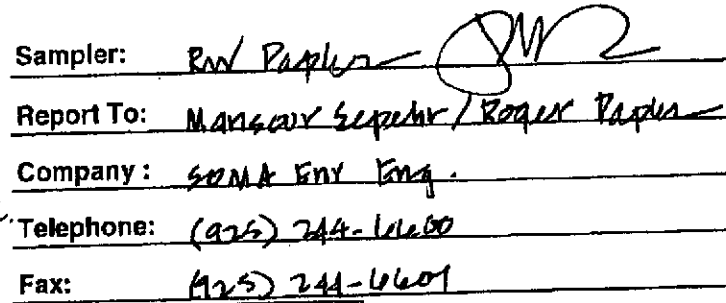 Sampler: RW Papler
Report To: Mansour Sepehr / Roger Papler
Company: SOMA Env Eng.
Telephone: (925) 244-6600
Fax: (925) 244-6601